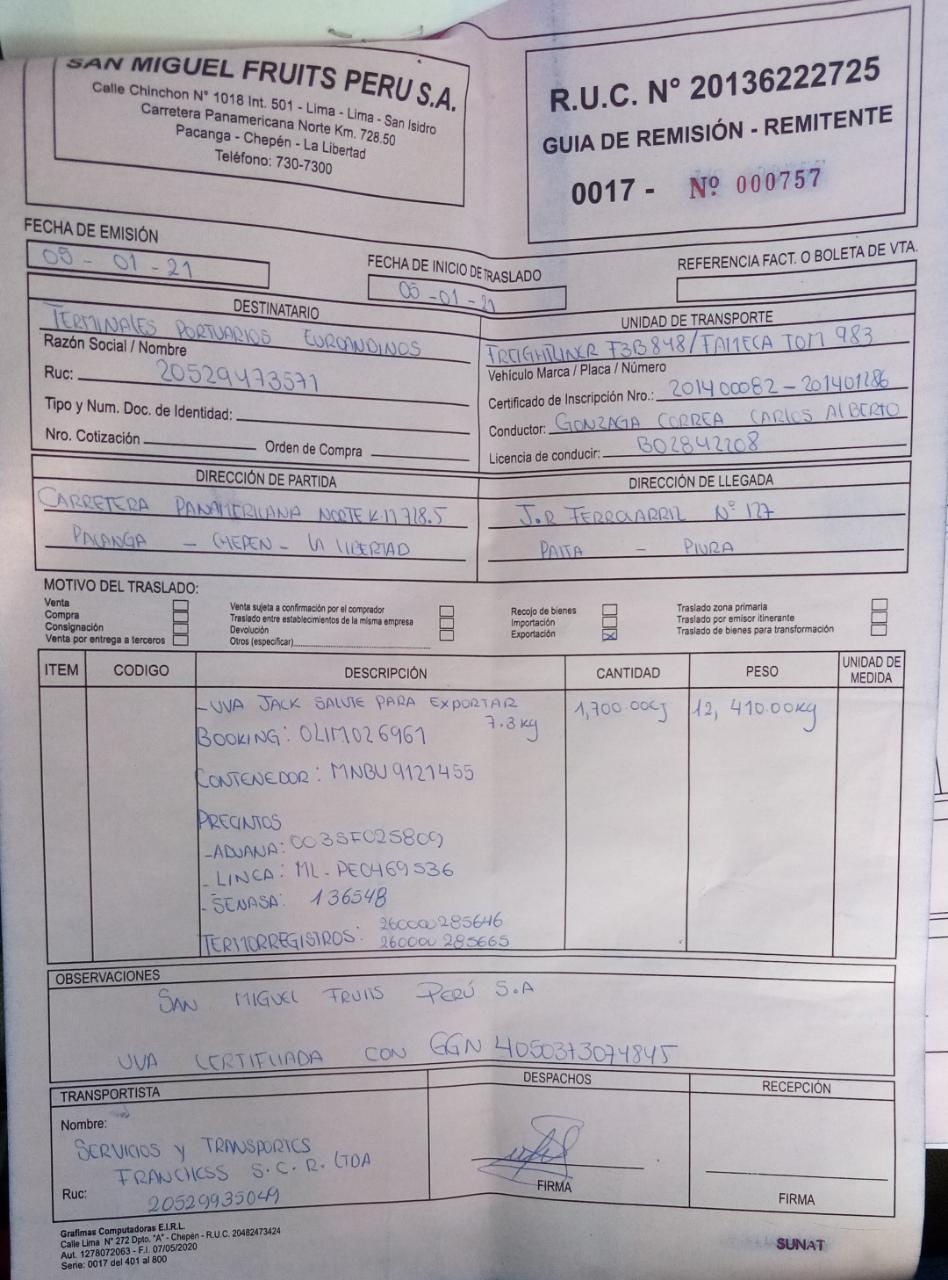 SAN MIGUEL FRUITS PERU S.A.
Calle Chinchon N° 1018 Int. 501 - Lima - Lima - San Isidro
Carretera Panamericana Norte Km. 728.50
Pacanga - Chepén - La Libertad
Teléfono: 730-7300
R.U.C. N° 20136222725
GUIA DE REMISIÓN - REMITENTE
0017 - Nº 000757
FECHA DE EMISIÓN
05 - 01 - 21
FECHA DE INICIO DE TRASLADO
05 - 01 - 21
REFERENCIA FACT. O BOLETA DE VTA.
DESTINATARIO
TERMINALES PORTUARIOS EUROANDINOS
Razón Social / Nombre
Ruc: 20529473571
Tipo y Num. Doc. de Identidad:
Nro. Cotización Orden de Compra
UNIDAD DE TRANSPORTE
FREIGHTLINER F3B848/FAMECA TOM 983
Vehículo Marca / Placa / Número
Certificado de Inscripción Nro.: 201400082 - 201401286
Conductor: GONZAGA CORREA CARLOS ALBERTO
Licencia de conducir: B02842208
DIRECCIÓN DE PARTIDA
CARRETERA PANAMERICANA NORTE K.M 728.5
PACANGA - CHEPEN - LA LIBERTAD
DIRECCIÓN DE LLEGADA
J.R FERROCARRIL N° 127
PAITA - PIURA
MOTIVO DEL TRASLADO:
Venta
Compra
Consignación
Venta por entrega a terceros
Venta sujeta a confirmación por el comprador
Traslado entre establecimientos de la misma empresa
Devolución
Otros (especificar)
Recojo de bienes
Importación
Exportación
Traslado zona primaria
Traslado por emisor itinerante
Traslado de bienes para transformación
ITEM CODIGO DESCRIPCIÓN CANTIDAD PESO UNIDAD DE MEDIDA
- UVA JACK SALUTE PARA EXPORTAR 1,700.00CJ 12, 410.00kg
7.3 kg
BOOKING: OLIM026961
CONTENEDOR: MNBU 9121455
PRECINTOS
- ADUANA: 003SF025809
- LINEA: ML - PE0469536
- SENASA: 136548
TERMORREGISTROS: 260000285646
260000285665
OBSERVACIONES
SAN MIGUEL FRUITS PERÚ S.A
UVA CERTIFIADA CON GGN 4050373074845
TRANSPORTISTA
Nombre:
SERVICIOS Y TRANSPORTES
FRANCHESS S.C.R. LTDA
Ruc: 20529935049
DESPACHOS
FIRMA
RECEPCIÓN
FIRMA
Grafimas Computadoras E.I.R.L.
Calle Lima N° 272 Dpto. "A" - Chepén - R.U.C. 20482473424
Aut. 1278072063 - F.I. 07/05/2020
Serie: 0017 del 401 al 800
SUNAT